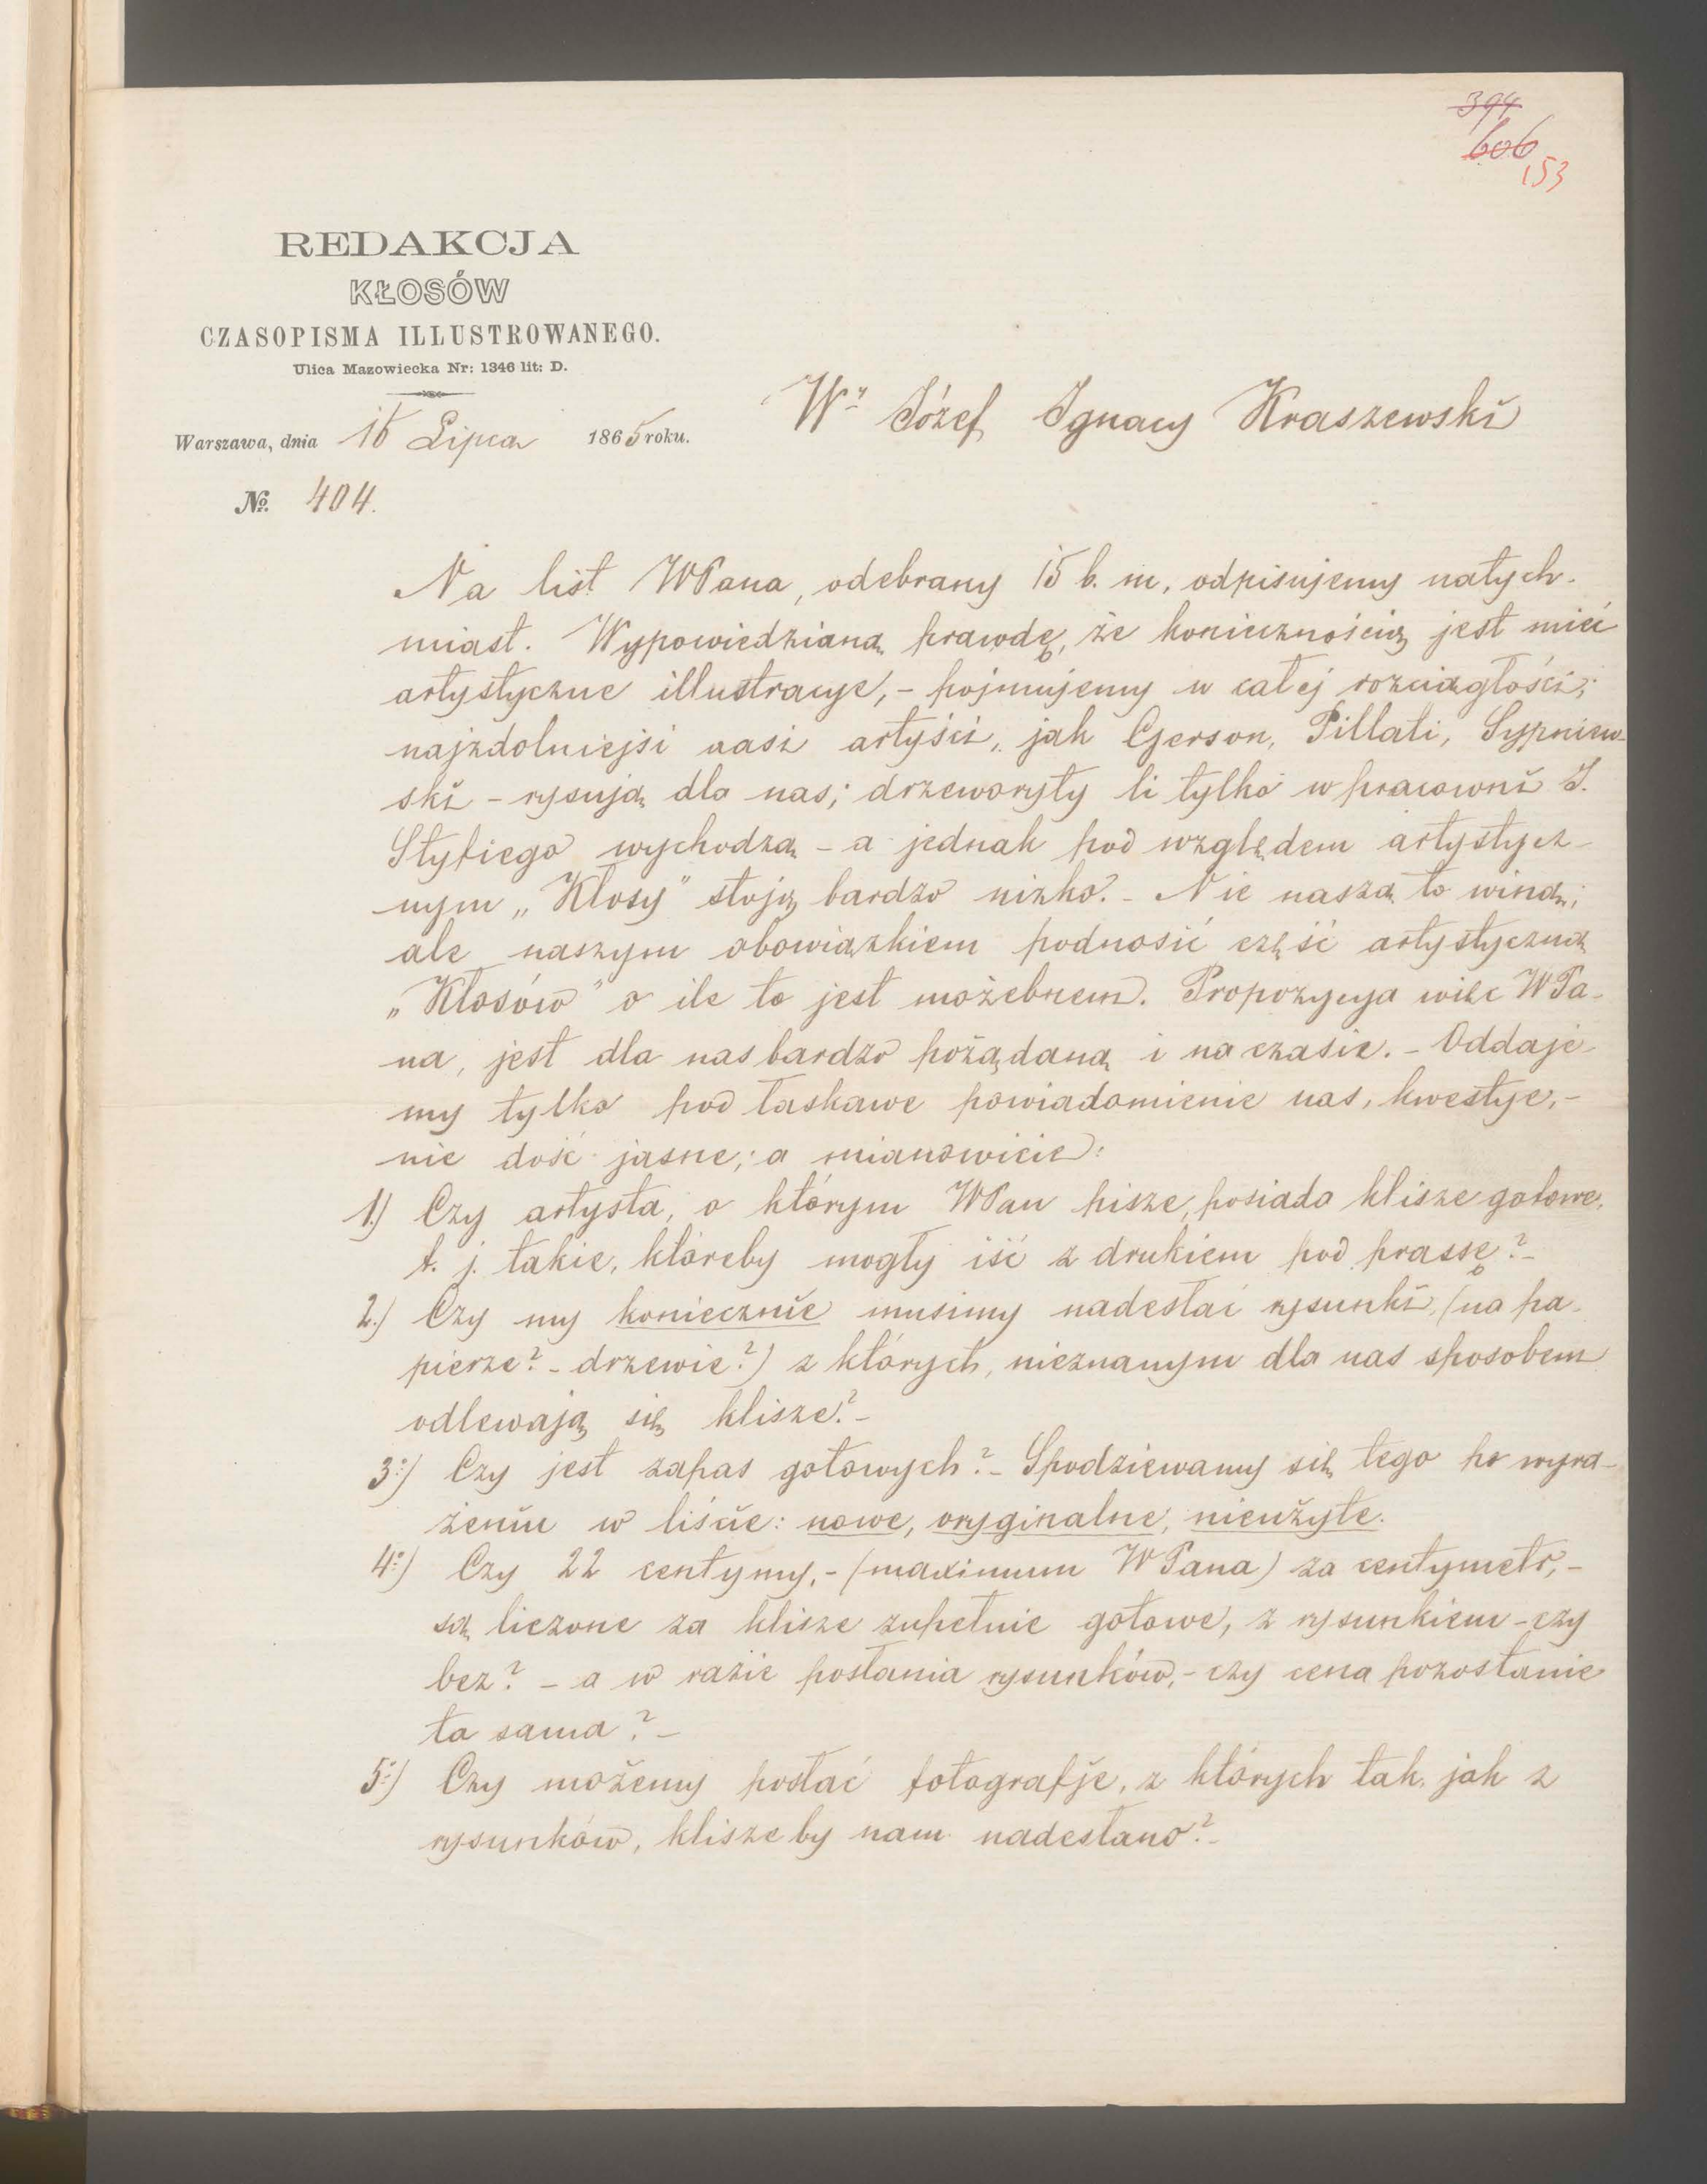 394
606
153
REDAKCJA
KŁOSÓW
CZASOPISMA ILLUSTROWANEGO.
Ulica Mazowiecka Nr: 1346 lit: D.
Wy Józef Ignacy Kraszewski
Warszawa, dnia Lipca 1865 roku.
No. 404.
Na list WPana, odebrany 15 b. m, odpisujemy natych-
miast. Wypowiedzianą prawdę, że koniecznością jest mieć
artystyczne illustracye, - pojmujemy w całej rozciągłości;
najzdolniejsi nasi artyści, jak Gerson, Pillati, Sypniew-
ski - rysują dla nas; drzeworyty li tylko w pracowni J.
Styfiego wychodzą - a jednak pod względem artystycz-
nym „Kłosy" stoją bardzo nizko. - Nie naszą to winą;
ale naszym obowiązkiem podnosić część artystyczną
„Kłosów" o ile to jest możebnem. Propozycya więc WPa-
na, jest dla nas bardzo pożądaną i na czasie. - Oddaje-
my tylko pod łaskawe powiadomienie nas, kwestye, -
nie dość jasne; a mianowicie:
1.) Czy artysta, o którym WPan pisze, posiada klisze gotowe,
t. j. takie, któreby mogły iść z drukiem pod prassę? -
2.) Czy my koniecznie musimy nadesłać rysunki, (na pa-
pierze? - drzewie?) z których, nieznanym dla nas sposobem
odlewają się klisze? -
3:) Czy jest zapas gotowych? - Spodziewamy się tego po wyra-
żeniu w liście: nowe, oryginalne, nieużyte.
4:) Czy 22 centymy, - (maximum WPana) za centymetr, -
są liczone za klisze zupełnie gotowe, z rysunkiem - czy
bez? - a w razie posłania rysunków, - czy cena pozostanie
ta sama? -
5:) Czy możemy posłać fotografje, z których tak, jak z
rysunków, klisze by nam nadesłano? -